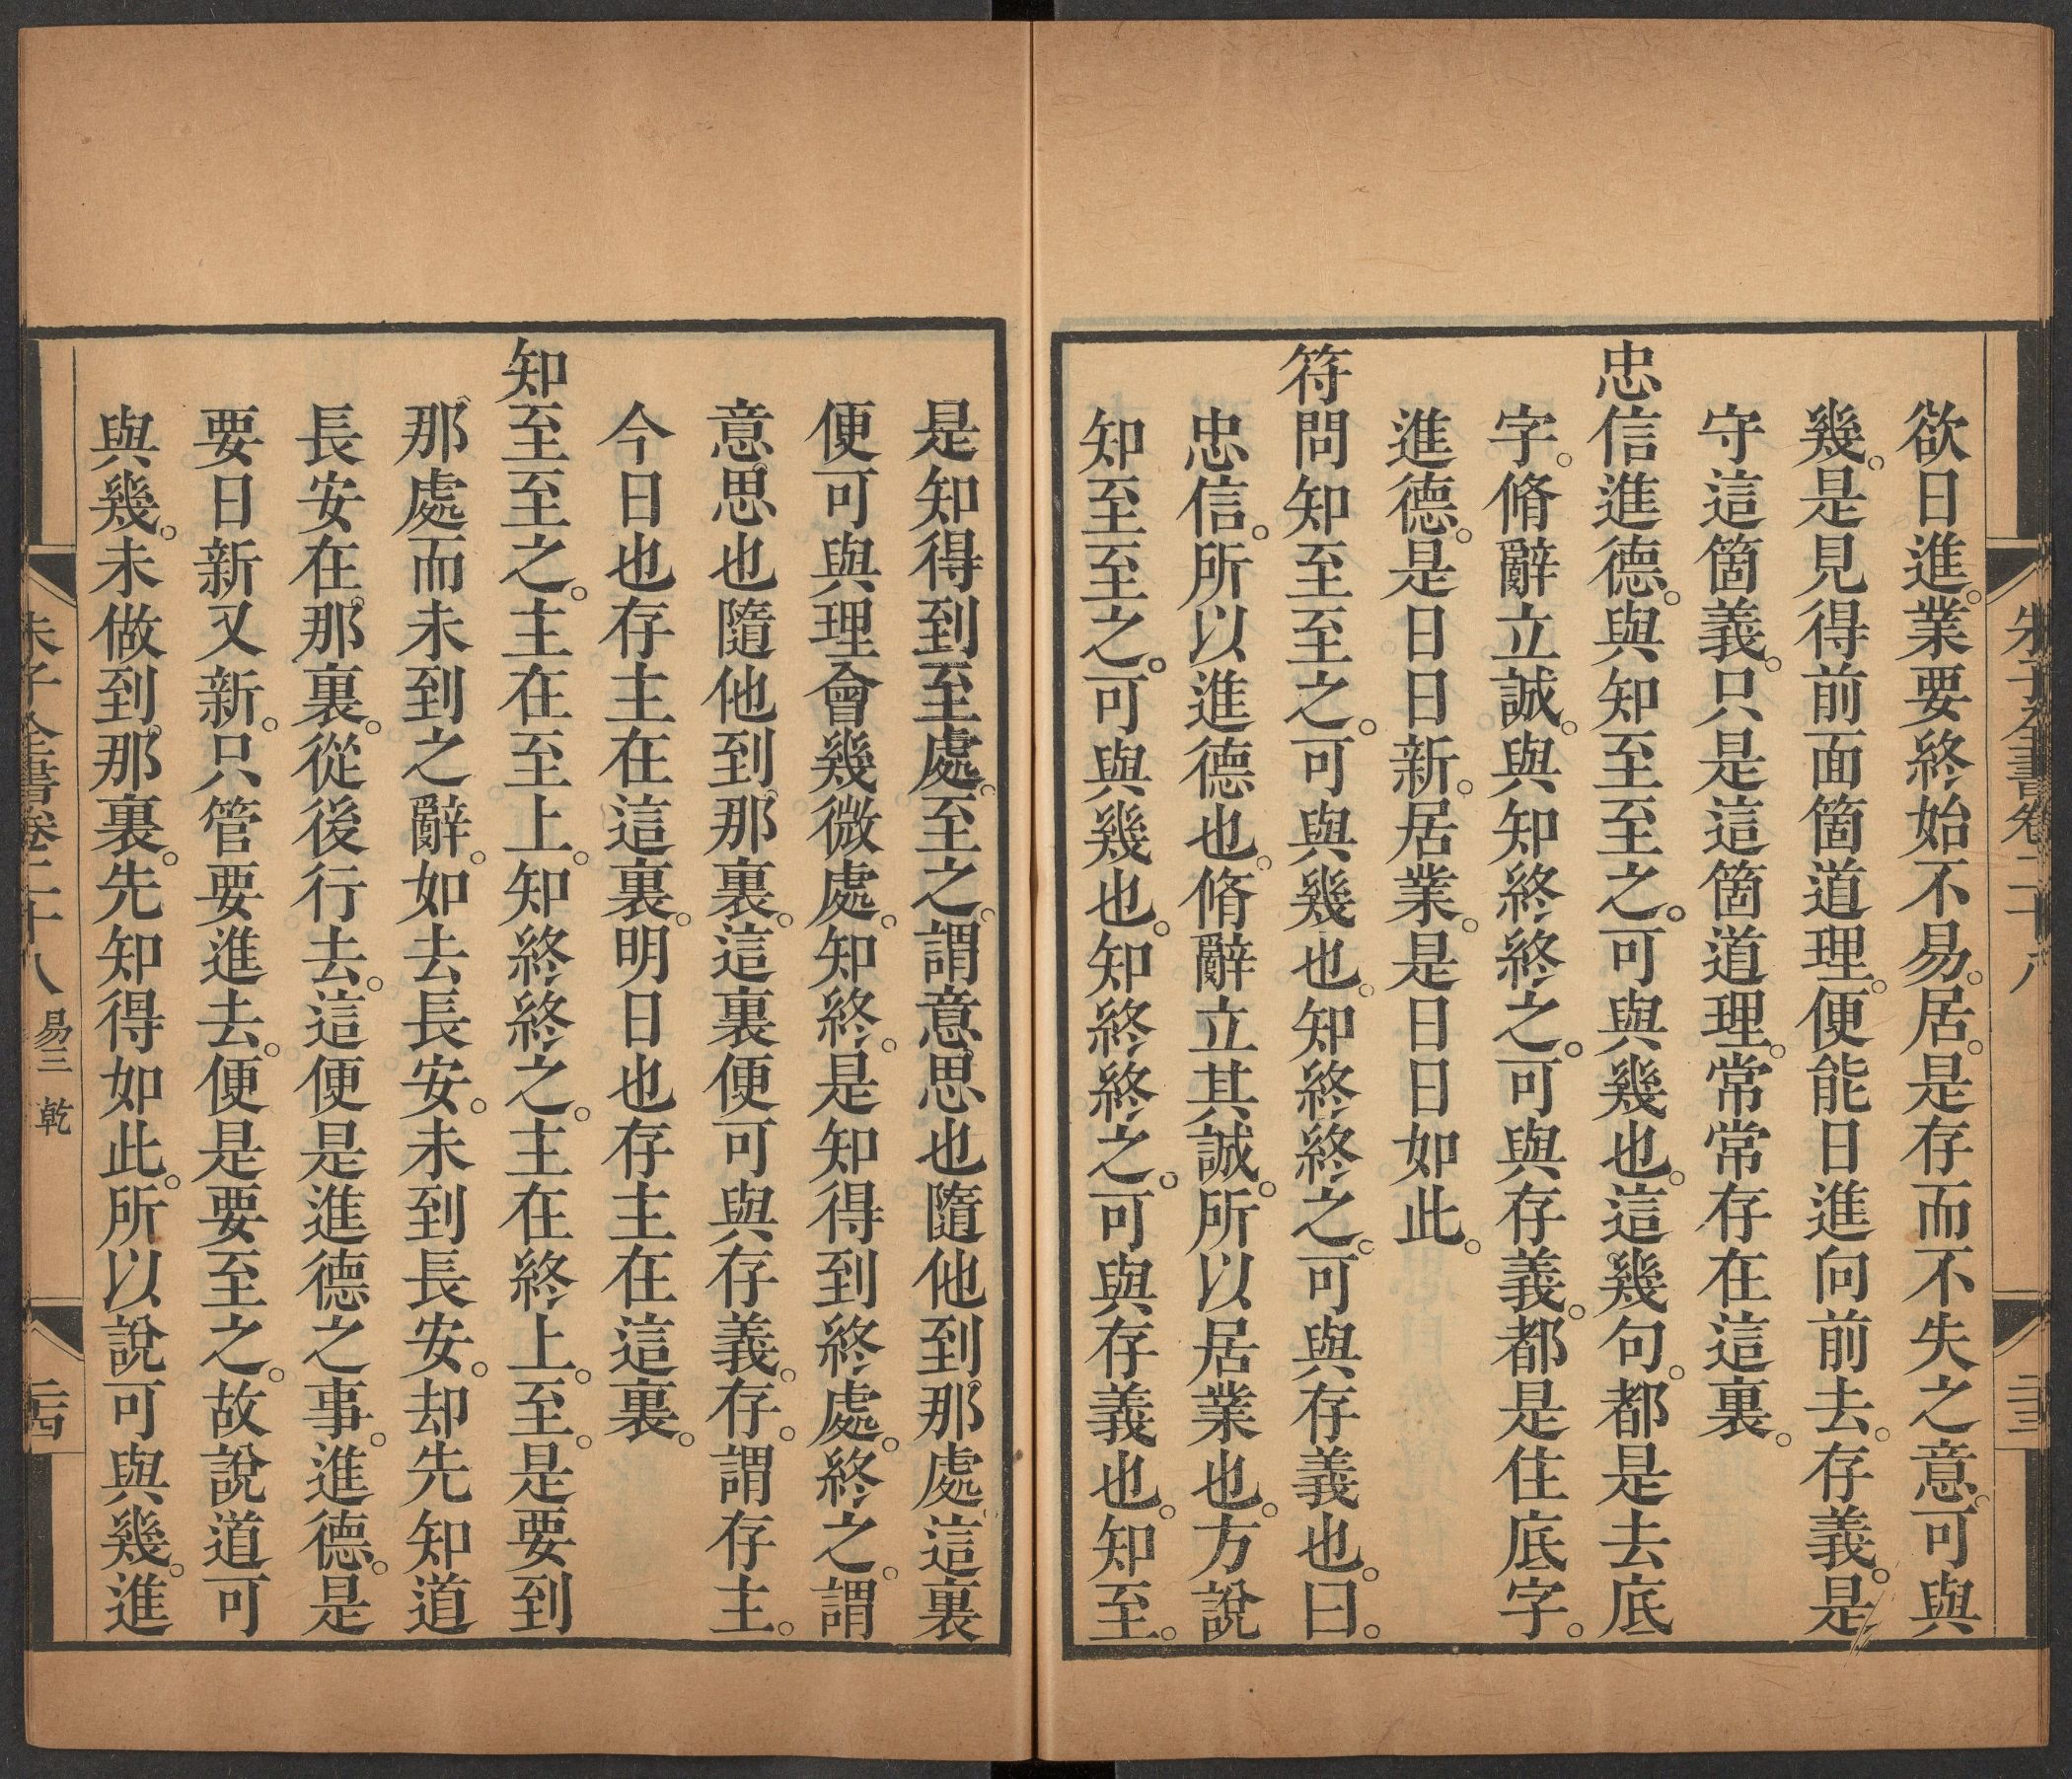 朱子全書卷二十八
二十三
欲日進。業要終始不易。居。是存而不失之意。可與
幾。是見得前面箇道理。便能日進向前去。存義。是
守這箇義。只是這箇道理。常常存在這裏。
忠信進德。與知至至之。可與幾也。這幾句。都是去底
字。脩辭立誠。與知終終之。可與存義。都是住底字。
進德。是日日新。居業。是日日如此。
符問知至至之。可與幾也。知終終之。可與存義也。曰。
忠信。所以進德也。脩辭立其誠。所以居業也。方說
知至至之。可與幾也。知終終之。可與存義也。知至。
是知得到至處。至之。謂意思也隨他到那處。這裏
便可與理會幾微處。知終。是知得到終處。終之。謂
意思也隨他到那裏。這裏便可與存義。存。謂存主。
今日也存主在這裏。明日也存主在這裏。
知至至之。主在至上。知終終之。主在終上。至。是要到
那處而未到之辭。如去長安。未到長安。却先知道
長安在那裏。從後行去。這便是進德之事。進德。是
要日新又新。只管要進去。便是要至之。故說道可
與幾。未做到那裏。先知得如此。所以說可與幾。進
朱子全書卷二十八 易三 乾
二十四